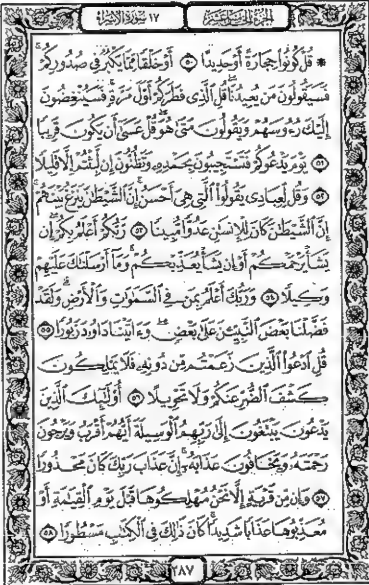 الجزء الخامس عشر
١٧ سورة الإسراء
۞ قُلْ كُونُوا۟ حِجَارَةً أَوْ حَدِيدًا ٥٠ أَوْ خَلْقًا مِّمَّا يَكْبُرُ فِى صُدُورِكُمْ
فَسَيَقُولُونَ مَن يُعِيدُنَا قُلِ ٱلَّذِى فَطَرَكُمْ أَوَّلَ مَرَّةٍ فَسَيُنْغِضُونَ
إِلَيْكَ رُءُوسَهُمْ وَيَقُولُونَ مَتَىٰ هُوَ قُلْ عَسَىٰٓ أَن يَكُونَ قَرِيبًا
٥١ يَوْمَ يَدْعُوكُمْ فَتَسْتَجِيبُونَ بِحَمْدِهِۦ وَتَظُنُّونَ إِن لَّبِثْتُمْ إِلَّا قَلِيلًا
٥٢ وَقُل لِّعِبَادِى يَقُولُوا۟ ٱلَّتِى هِىَ أَحْسَنُ إِنَّ ٱلشَّيْطَٰنَ يَنزَغُ بَيْنَهُمْ
إِنَّ ٱلشَّيْطَٰنَ كَانَ لِلْإِنسَٰنِ عَدُوًّا مُّبِينًا ٥٣ رَّبُّكُمْ أَعْلَمُ بِكُمْ إِن
يَشَأْ يَرْحَمْكُمْ أَوْ إِن يَشَأْ يُعَذِّبْكُمْ وَمَآ أَرْسَلْنَٰكَ عَلَيْهِمْ
وَكِيلًا ٥٤ وَرَبُّكَ أَعْلَمُ بِمَن فِى ٱلسَّمَٰوَٰتِ وَٱلْأَرْضِ وَلَقَدْ
فَضَّلْنَا بَعْضَ ٱلنَّبِيِّۦنَ عَلَىٰ بَعْضٍ وَءَاتَيْنَا دَاوُۥدَ زَبُورًا ٥٥
قُلِ ٱدْعُوا۟ ٱلَّذِينَ زَعَمْتُم مِّن دُونِهِۦ فَلَا يَمْلِكُونَ
كَشْفَ ٱلضُّرِّ عَنكُمْ وَلَا تَحْوِيلًا ٥٦ أُو۟لَٰٓئِكَ ٱلَّذِينَ
يَدْعُونَ يَبْتَغُونَ إِلَىٰ رَبِّهِمُ ٱلْوَسِيلَةَ أَيُّهُمْ أَقْرَبُ وَيَرْجُونَ
رَحْمَتَهُۥ وَيَخَافُونَ عَذَابَهُۥٓ إِنَّ عَذَابَ رَبِّكَ كَانَ مَحْذُورًا
٥٧ وَإِن مِّن قَرْيَةٍ إِلَّا نَحْنُ مُهْلِكُوهَا قَبْلَ يَوْمِ ٱلْقِيَٰمَةِ أَوْ
مُعَذِّبُوهَا عَذَابًا شَدِيدًا كَانَ ذَٰلِكَ فِى ٱلْكِتَٰبِ مَسْطُورًا ٥٨
٢٨٧